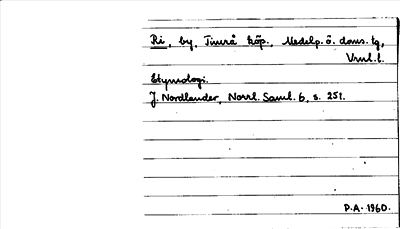 Ri, by, Timrå köp., Medelp. ö. doms. tg,
Vrml. l.
Etymologi.
J. Nordlander, Norrl. Saml. 6, s. 251.
P.A. 1960.